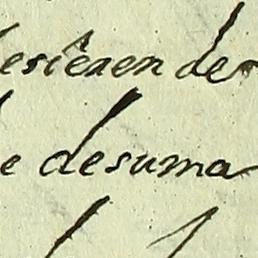 esieren de
e desuma